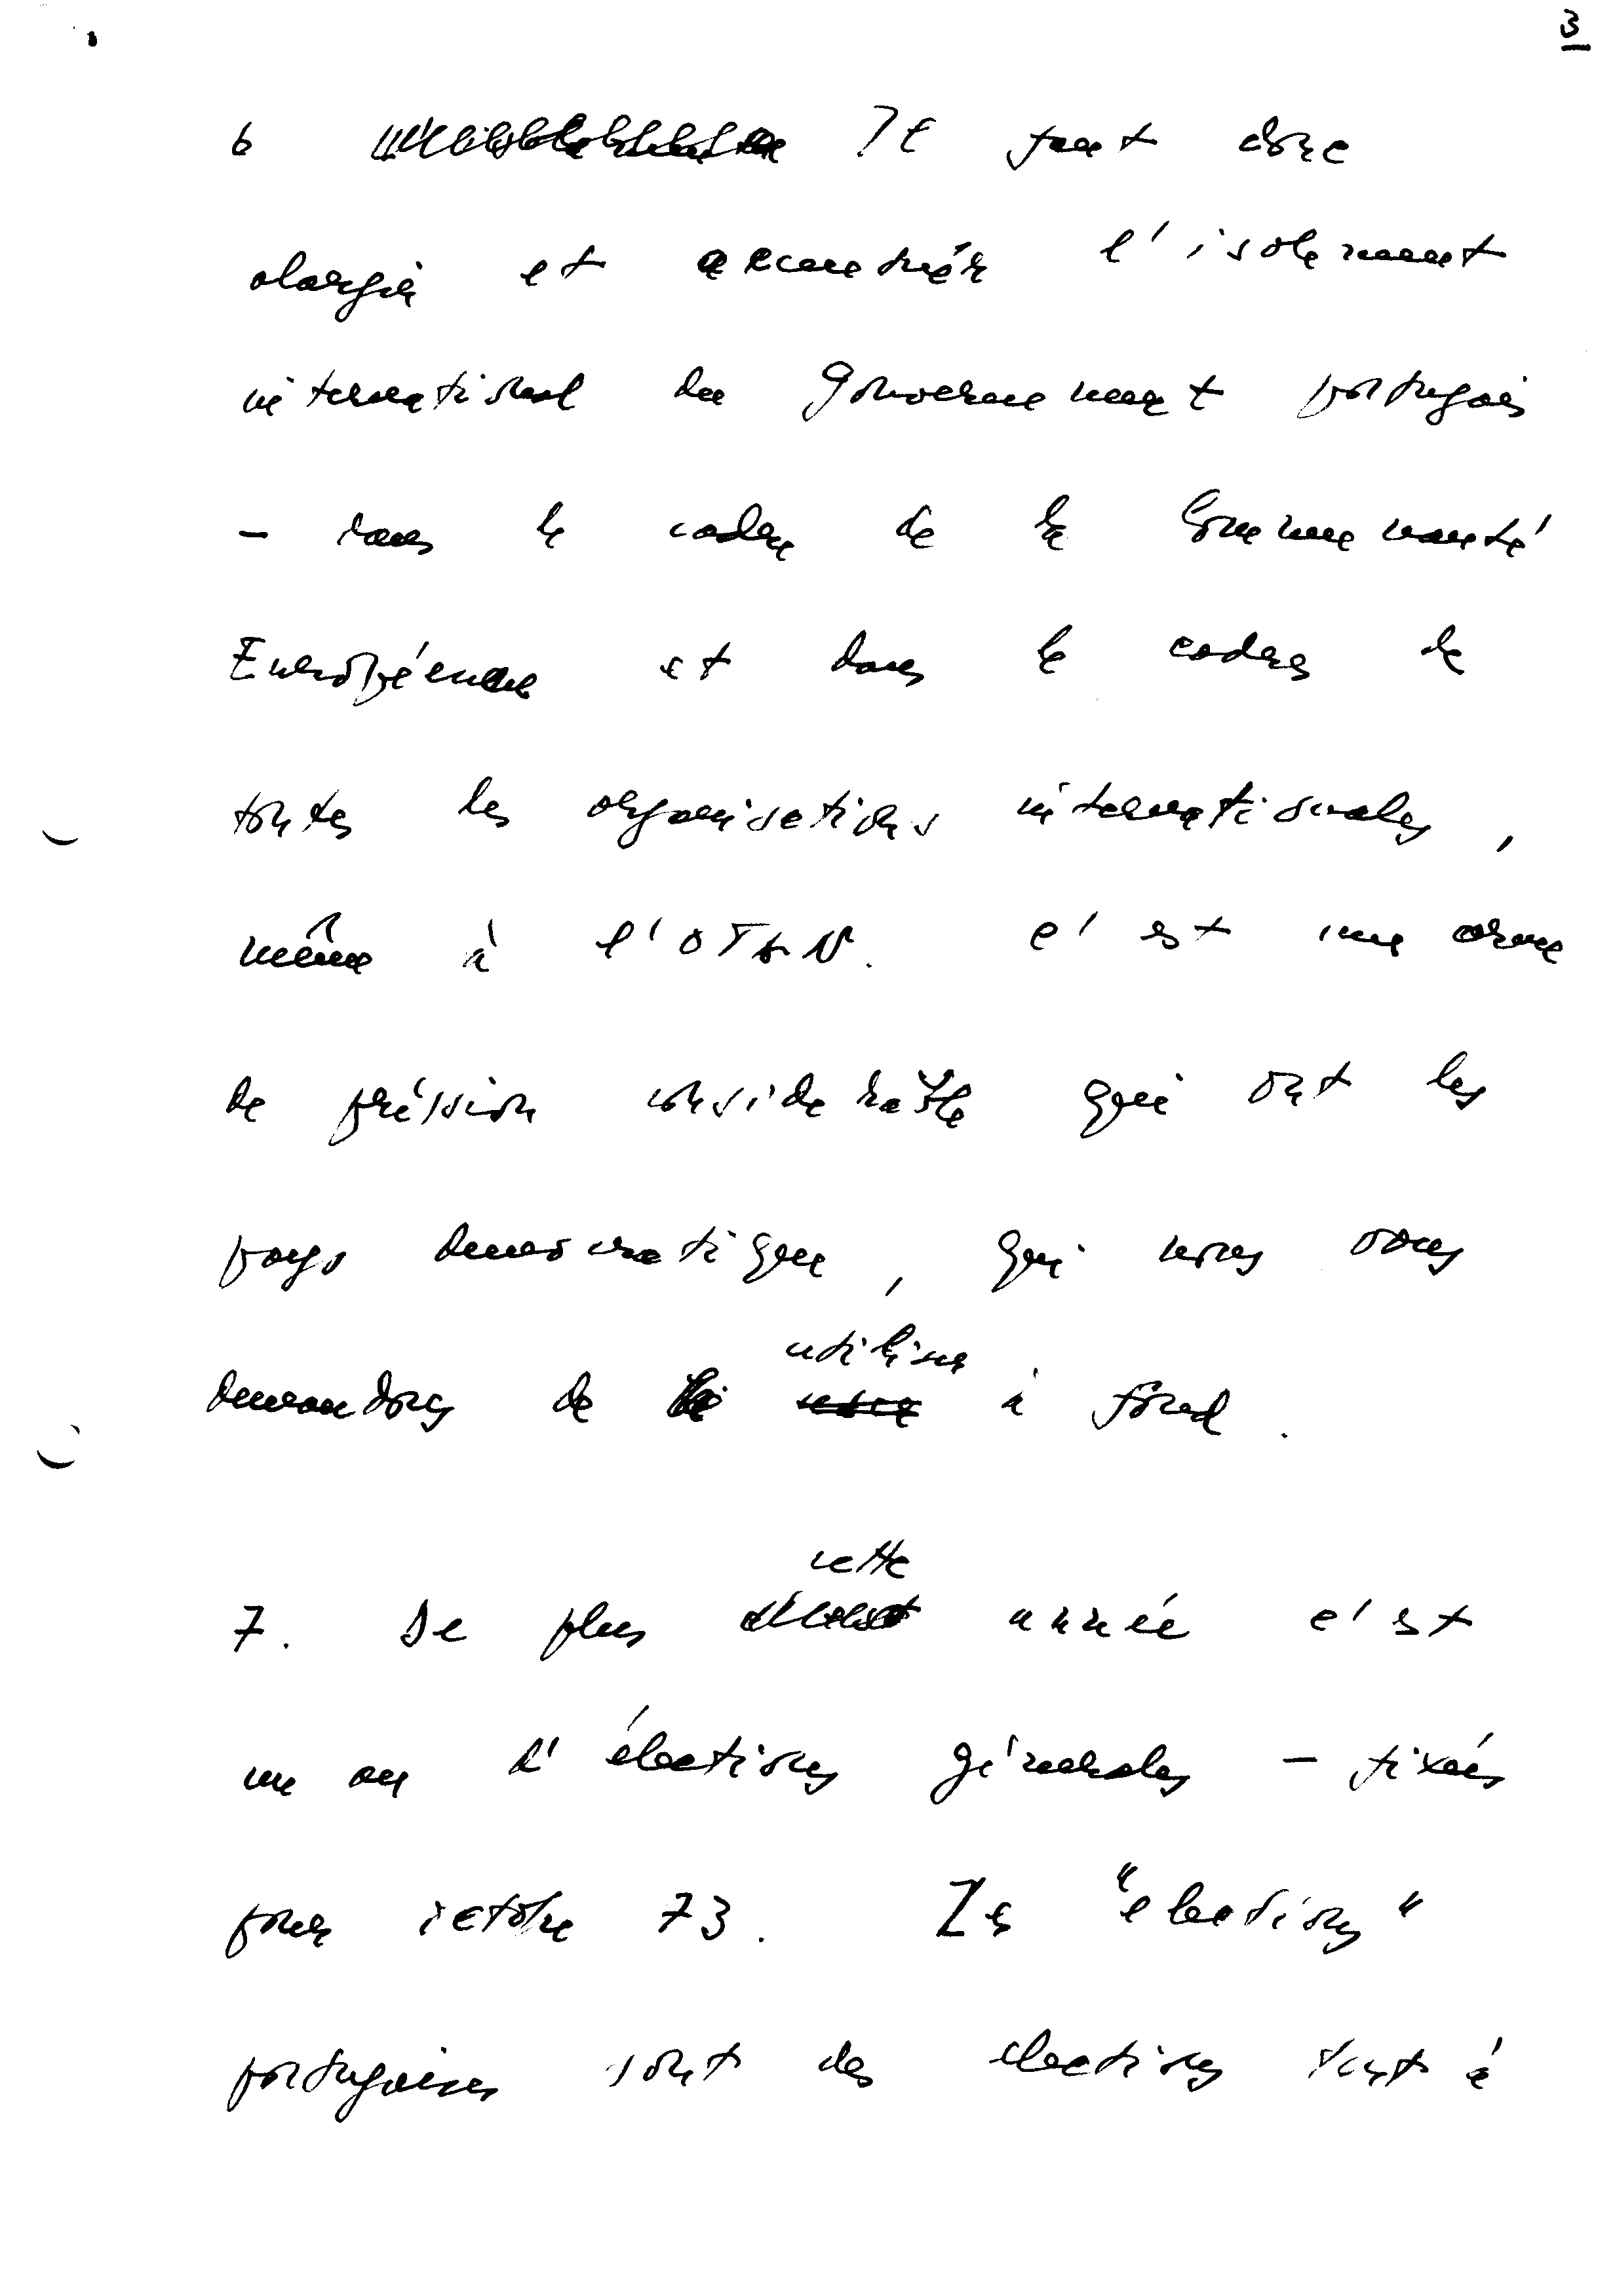 3
6 Il faut donc
elargir et accentuér l'isolement
international du Gouvernement portugais
- dans le cadre de la Communauté
Européenne et dans le cadre de
toutes les organisations internationales,
même à l'OTAN. c'est une arme
de préssion considerable que ont les
pays democratique, que nous vous
demandons de utiliser à fond.
7. De plus cette année c'est
un an d'élections génerales - fixées
pour octobre 73. Les "elections"
portugaises sont des elections tout à